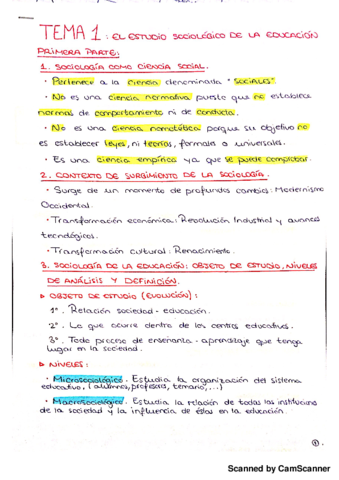 TEMA 1: EL ESTUDIO SOCIOLÓGICO DE LA EDUCACIÓN
PRIMERA PARTE:
1. SOCIOLOGÍA COMO CIENCIA SOCIAL.
· Pertenece a la ciencia denominada "SOCIALES"
· No es una ciencia normativa puesto que no establece
normas de comportamiento ni de conducta.
· No es una ciencia nomotética porque su objetivo no
es establecer leyes, ni teorías, formales o universales.
· Es una ciencia empírica ya que se puede comprobar.
2. CONTEXTO DE SURGIMIENTO DE LA SOCIOLOGÍA.
· Surge de un momento de profundos cambios: Modernismo
Occidental.
· Transformación económica: Revolución Industrial y avances
tecnológicos.
· Transformación cultural: Renacimiento.
3. SOCIOLOGÍA DE LA EDUCACIÓN: OBJETO DE ESTUDIO, NIVELES
DE ANÁLISIS Y DEFINICIÓN.
▷ OBJETO DE ESTUDIO (EVOLUCIÓN):
1º. Relación sociedad - educación.
2º. Lo que ocurre dentro de los centros educativos.
3º. Todo proceso de enseñanza - aprendizaje que tenga
lugar en la sociedad.
▷ NIVELES:
· Microsociológico. Estudia la organización del sistema
educativo, (alumnos, profesores, temario, ...)
· Macrosociológico. Estudia la relación de todas las instituciones
de la sociedad y la influencia de éstas en la educación.
1.
Scanned by CamScanner